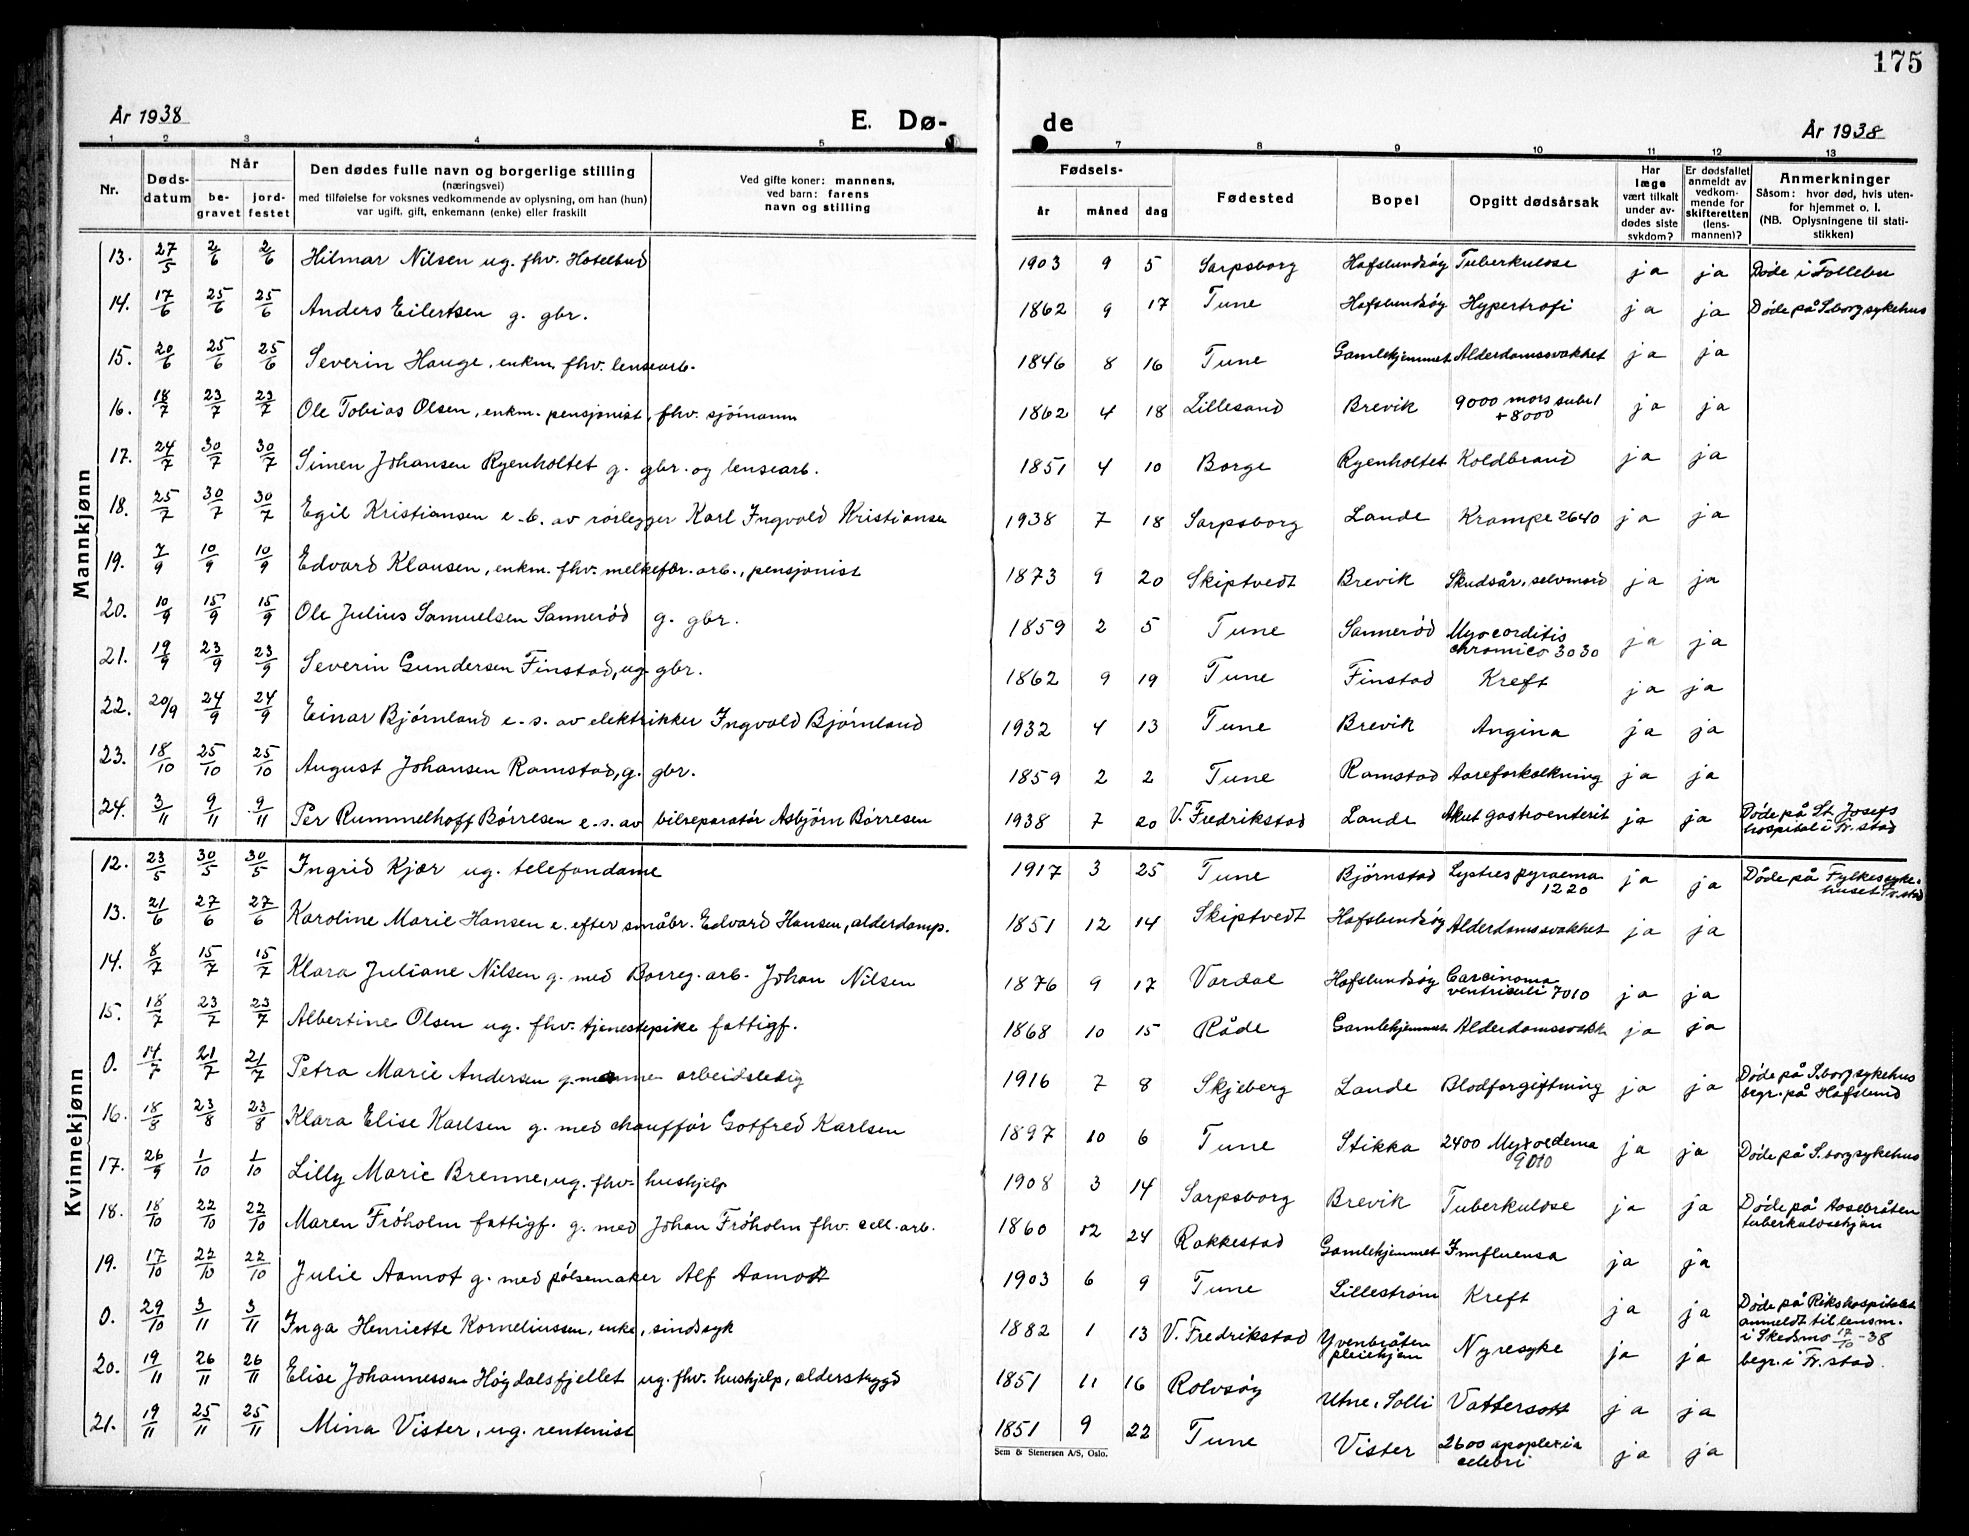 175
År 1938
E. Dø-
de
År 1938
1 2 3 4 5 7 8 9 10 11 12 13
Nr.
Døds-
datum
Når
be-
gravet
jord-
festet
Den dødes fulle navn og borgerlige stilling
(næringsvei)
med tilføielse for voksnes vedkommende av oplysning, om han (hun)
var ugift, gift, enkemann (enke) eller fraskilt
Ved gifte koner: mannens,
ved barn: farens
navn og stilling
Fødsels-
år måned dag
Fødested
Bopel
Opgitt dødsårsak
Har
læge
vært tilkalt
under av-
dødes siste
sykdom?
Er dødsfallet
anmeldt av
vedkom-
mende for
skifteretten
(lens-
mannen)?
Anmerkninger
Såsom: hvor død, hvis uten-
for hjemmet o. l.
(NB. Oplysningene til stati-
stikken)
Mannkjønn
13. 27/5 2/6 2/6 Hilmar Nilsen ug. fhv. Hotelbud 1903 9 5 Sarpsborg Hafslundsøy Tuberkulose ja ja Døde i Follebu
14. 17/6 25/6 25/6 Anders Eilertsen g. gbr. 1862 9 17 Tune Hafslundsøy Hypertrofi ja ja Døde på S.borg sykehus
15. 20/6 25/6 25/6 Severin Hauge, enkm. fhv. lensearb. 1846 8 16 Tune Gamlehjemmet Alderdomssvakhet ja ja
16. 18/7 23/7 23/7 Ole Tobias Olsen, enkm. pensjonist, fhv. sjømann 1862 4 18 Lillesand Brevik 9000 mors subit + 8000 ja ja
17. 24/7 30/7 30/7 Simen Johansen Ryenholtet g. gbr. og lensearb. 1851 4 10 Borge Ryenholtet Koldbrand ja ja
18. 25/7 30/7 30/7 Egil Kristiansen e. b. av rørlegger Karl Ingvald Kristiansen 1938 7 18 Sarpsborg Lande Krampe 2640 ja ja
19. 7/9 10/9 10/9 Edvard Klausen, enkm. fhv. melkefor. arb., pensjonist 1873 9 20 Skiptvedt Brevik Skudsår, selvmord ja ja
20. 10/9 15/9 15/9 Ole Julius Samuelsen Sannerød g. gbr. 1859 2 5 Tune Sannerød Myocorditis chronico 3030 ja ja
21. 19/9 23/9 23/9 Severin Gundersen Finstad, ug. gbr. 1862 9 19 Tune Finstad Kreft ja ja
22. 20/9 24/9 24/9 Einar Bjørnland e. s. av elektrikker Ingvald Bjørnland 1932 4 13 Tune Brevik Angina ja ja
23. 18/10 25/10 25/10 August Johansen Ramstad, g. gbr. 1859 2 2 Tune Ramstad Aareforkalkning ja ja
24. 3/11 9/11 9/11 Per Rummelhoff Børresen e. s. av bilreparatør Asbjørn Børresen 1938 7 20 V. Fredrikstad Lande Akut gastroenterit ja ja Døde på St. Josefs hospital i Fr.stad
Kvinnekjønn
12. 23/5 30/5 30/5 Ingrid Kjær ug. telefondame 1917 3 25 Tune Bjørnstad pyraema 1220 ja ja Døde på Fylkessyke-huset Fr.stad
13. 21/6 27/6 27/6 Karoline Marie Hansen e. efter småbr. Edvard Hansen, 1851 12 14 Skiptvedt Hafslundsøy Alderdomssvakhet ja ja
14. 8/7 15/7 15/7 Klara Juliane Nilsen g. med Borreg. arb. Johan Nilsen 1876 9 17 Vardal Hafslundsøy Carcinoma ventriculi 7010 ja ja
15. 18/7 23/7 23/7 Albertine Olsen ug. fhv. tjenestepike fattigf. 1868 10 15 Råde Gamlehjemmet Alderdomssvakh ja ja
0. 14/7 21/7 21/7 Petra Marie Andersen g. arbeidsledig 1916 7 8 Skjeberg Lande Blodforgiftning ja ja Døde på S.borg sykehus begr. på Hafslund
16. 18/8 23/8 23/8 Klara Elise Karlsen g. med chauffør Gotfred Karlsen 1897 10 6 Tune Stikka 2400 Myxoedema 9010 ja ja Døde på S.borg sykehus
17. 26/9 1/10 1/10 Lilly Marie Brenne, ug. fhv. hushjelp 1908 3 14 Sarpsborg Brevik Tuberkulose ja ja Døde på Aasebråten tuberkulosehjem
18. 18/10 22/10 22/10 Maren Frøholm fattigf. g. med Johan Frøholm fhv. cell. arb. 1860 12 24 Rakkestad Gamlehjemmet Innfluensa ja ja
19. 17/10 22/10 22/10 Julie Aamot g. med pølsemaker Alf Aamodt 1903 6 9 Tune Lillestrøm Kreft ja ja Døde på Rikshospitalet anmeldt til lensm. i Skedsmo 17/10-38
0. 29/10 3/11 3/11 Inga Henriette Korneliussen, enke, sindssyk 1882 1 13 V. Fredrikstad Yvenbråten pleiehjem Nyresyke ja ja begr. i Fr.stad.
20. 19/11 26/11 26/11 Elise Johannessen Høgdalsfjellet ug. fhv. hushjelp, alderstrygd 1851 11 16 Rolvsøy Utne, Solli Vattersott ja ja
21. 19/11 25/11 25/11 Mina Vister, ug. rentenist 1851 9 22 Tune Vister 2600 apoplexia celebri ja ja
Sem & Stenersen A/S, Oslo.